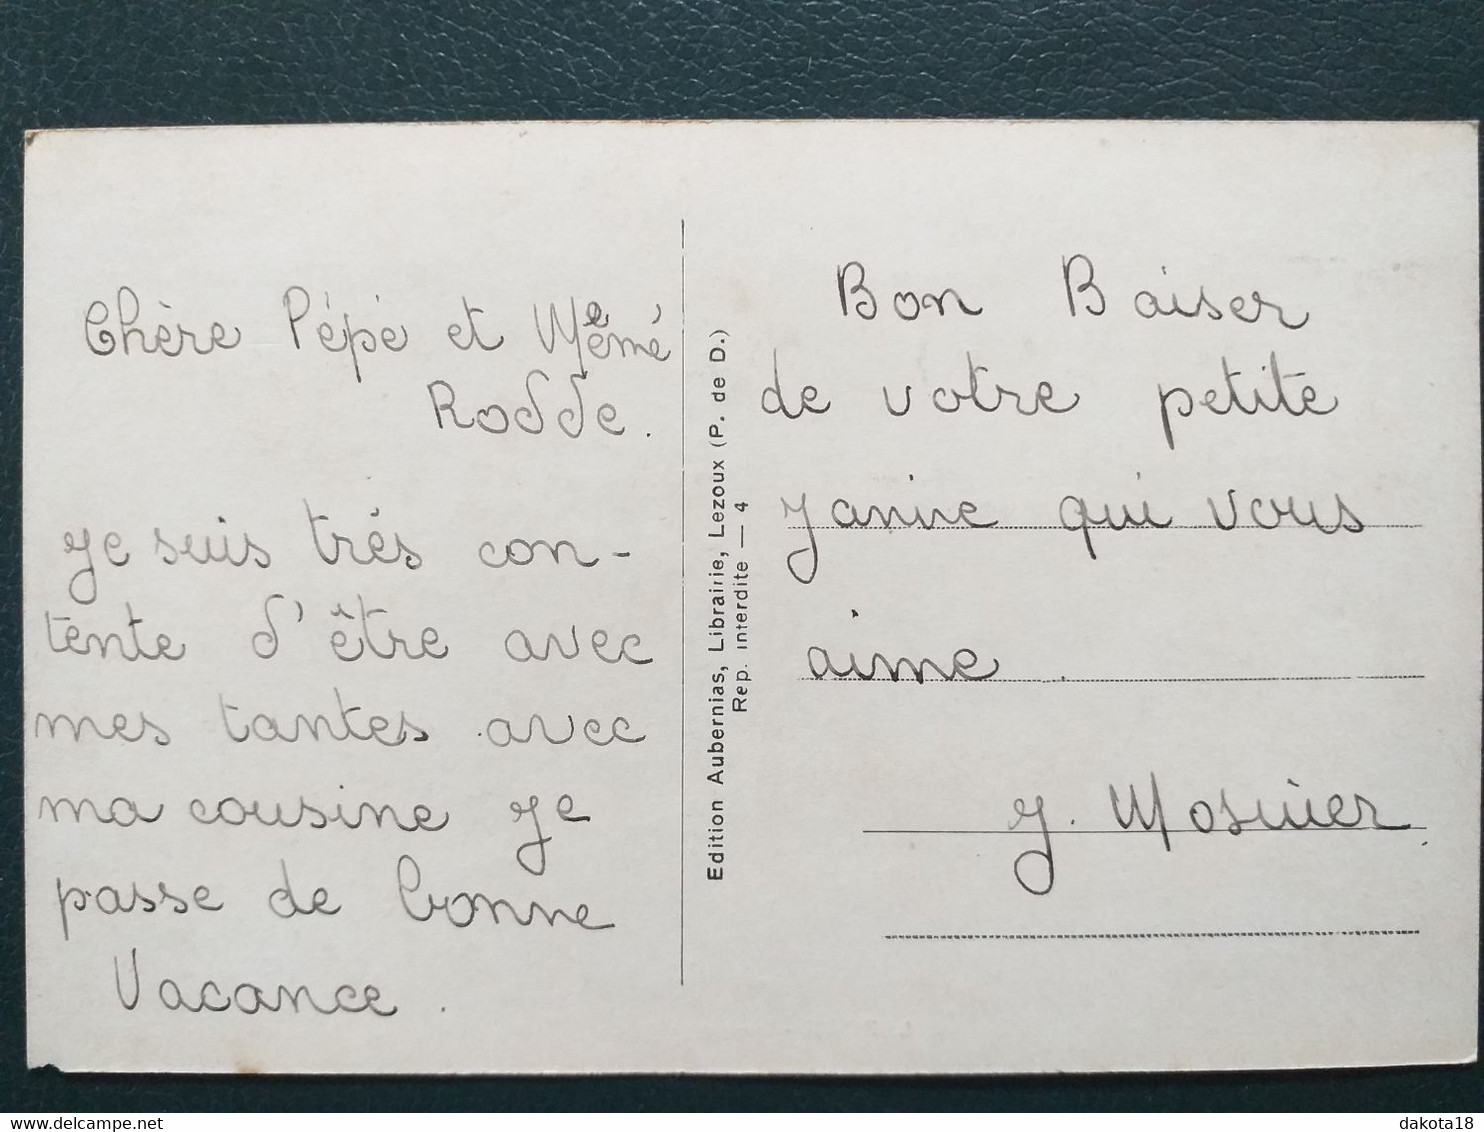 Chère Pépé et Mémé
Rodde.
Je suis très con-
tente d'être avec
mes tantes avec
ma cousine Je
passe de bonne
Vacance.
Edition Aubernias, Librairie, Lezoux (P. de D.)
Rep. interdite — 4
Bon Baiser
de votre petite
Janine qui vous
aime.
J. Mosnier
dakota18